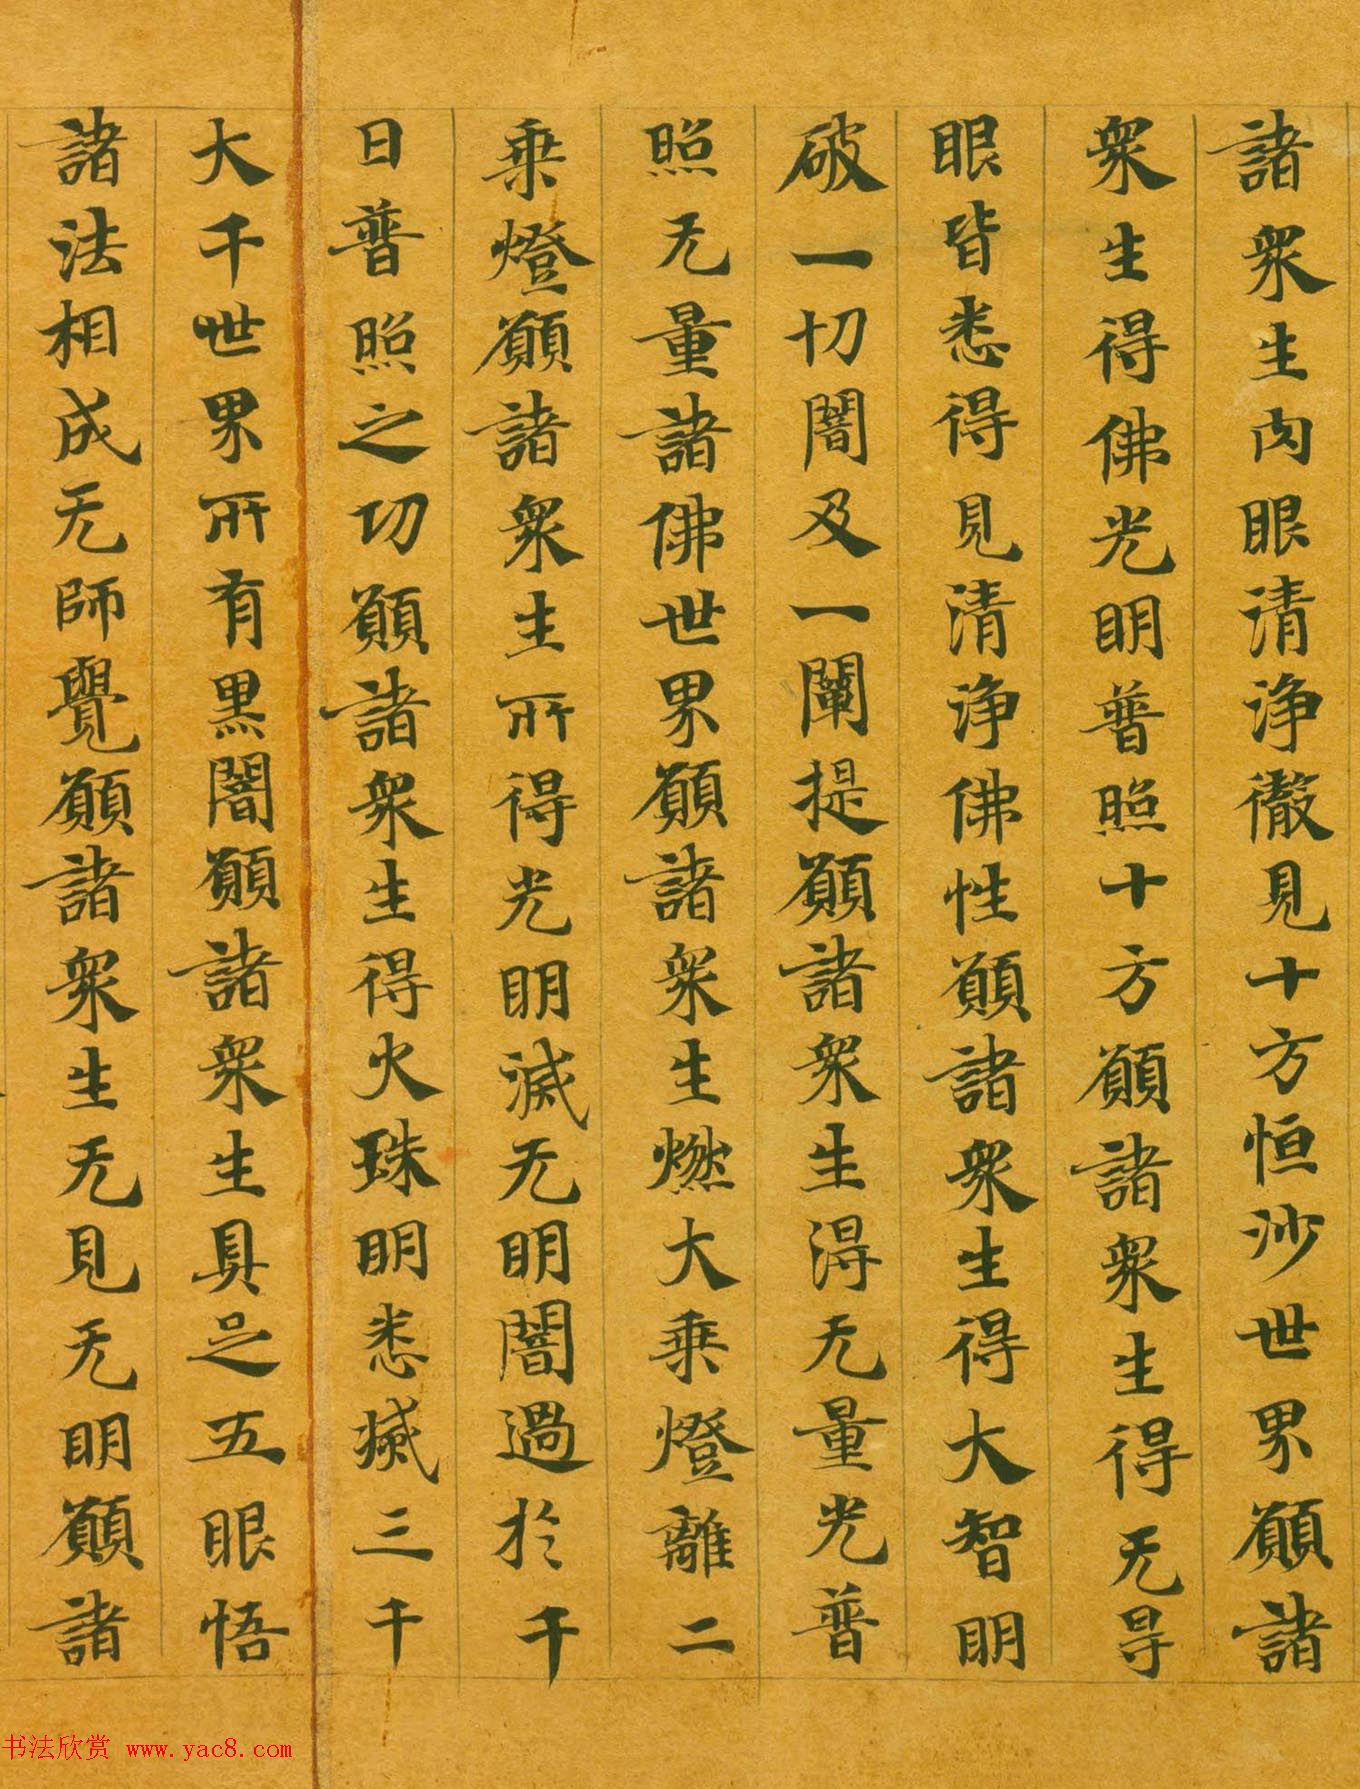 諸衆生肉眼清淨徹見十方恒沙世界願諸
衆生得佛光明普照十方願諸衆生得无㝵
眼皆悉得見清淨佛性願諸衆生得大智明
破一切闇及一闡提願諸衆生得无量光普
照无量諸佛世界願諸衆生燃大乗燈離二
乗燈願諸衆生所得光明滅无明闇過於千
日普照之功願諸衆生得火珠明悉滅三千
大千世界所有黒闇願諸衆生具足五眼悟
諸法相成无師覺願諸衆生无見无明願諸
书法欣赏 www.yac8.com